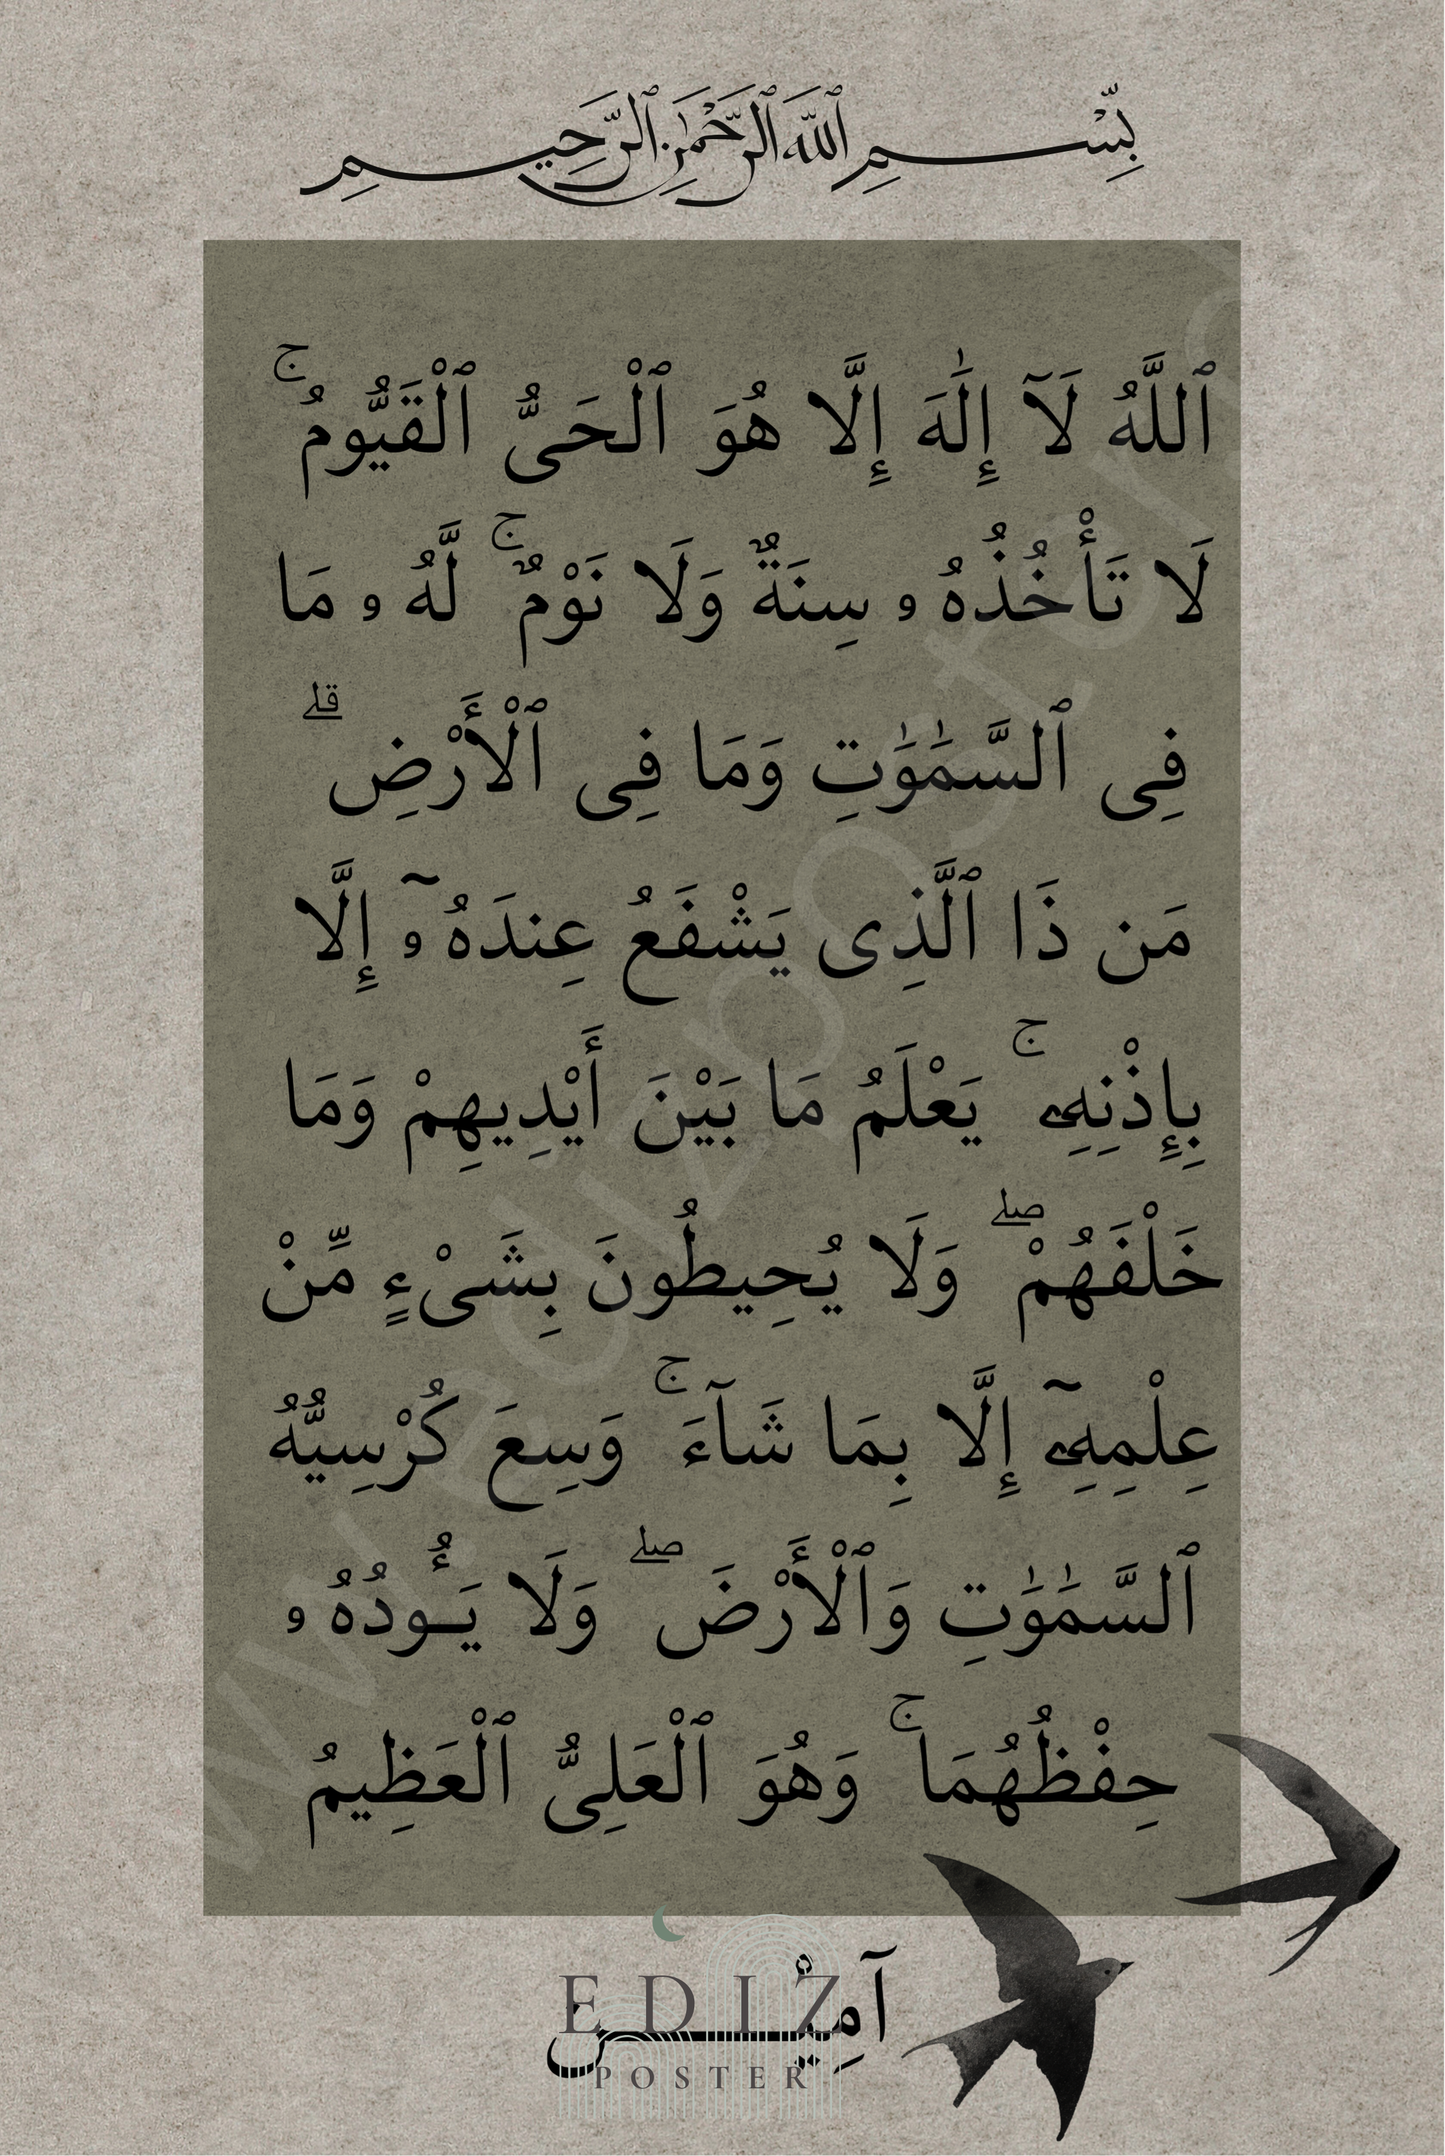 بِسْمِ ٱللَّهِ ٱلرَّحْمَٰنِ ٱلرَّحِيمِ
ٱللَّهُ لَآ إِلَٰهَ إِلَّا هُوَ ٱلْحَىُّ ٱلْقَيُّومُ ۚ
لَا تَأْخُذُهُۥ سِنَةٌ وَلَا نَوْمٌ ۚ لَّهُۥ مَا
فِى ٱلسَّمَٰوَٰتِ وَمَا فِى ٱلْأَرْضِ ۗ
مَن ذَا ٱلَّذِى يَشْفَعُ عِندَهُۥٓ إِلَّا
بِإِذْنِهِۦ ۚ يَعْلَمُ مَا بَيْنَ أَيْدِيهِمْ وَمَا
خَلْفَهُمْ ۖ وَلَا يُحِيطُونَ بِشَىْءٍ مِّنْ
عِلْمِهِۦٓ إِلَّا بِمَا شَآءَ ۚ وَسِعَ كُرْسِيُّهُ
ٱلسَّمَٰوَٰتِ وَٱلْأَرْضَ ۖ وَلَا يَـُٔودُهُۥ
حِفْظُهُمَا ۚ وَهُوَ ٱلْعَلِىُّ ٱلْعَظِيمُ
آمِيْن
EDIZ
POSTER